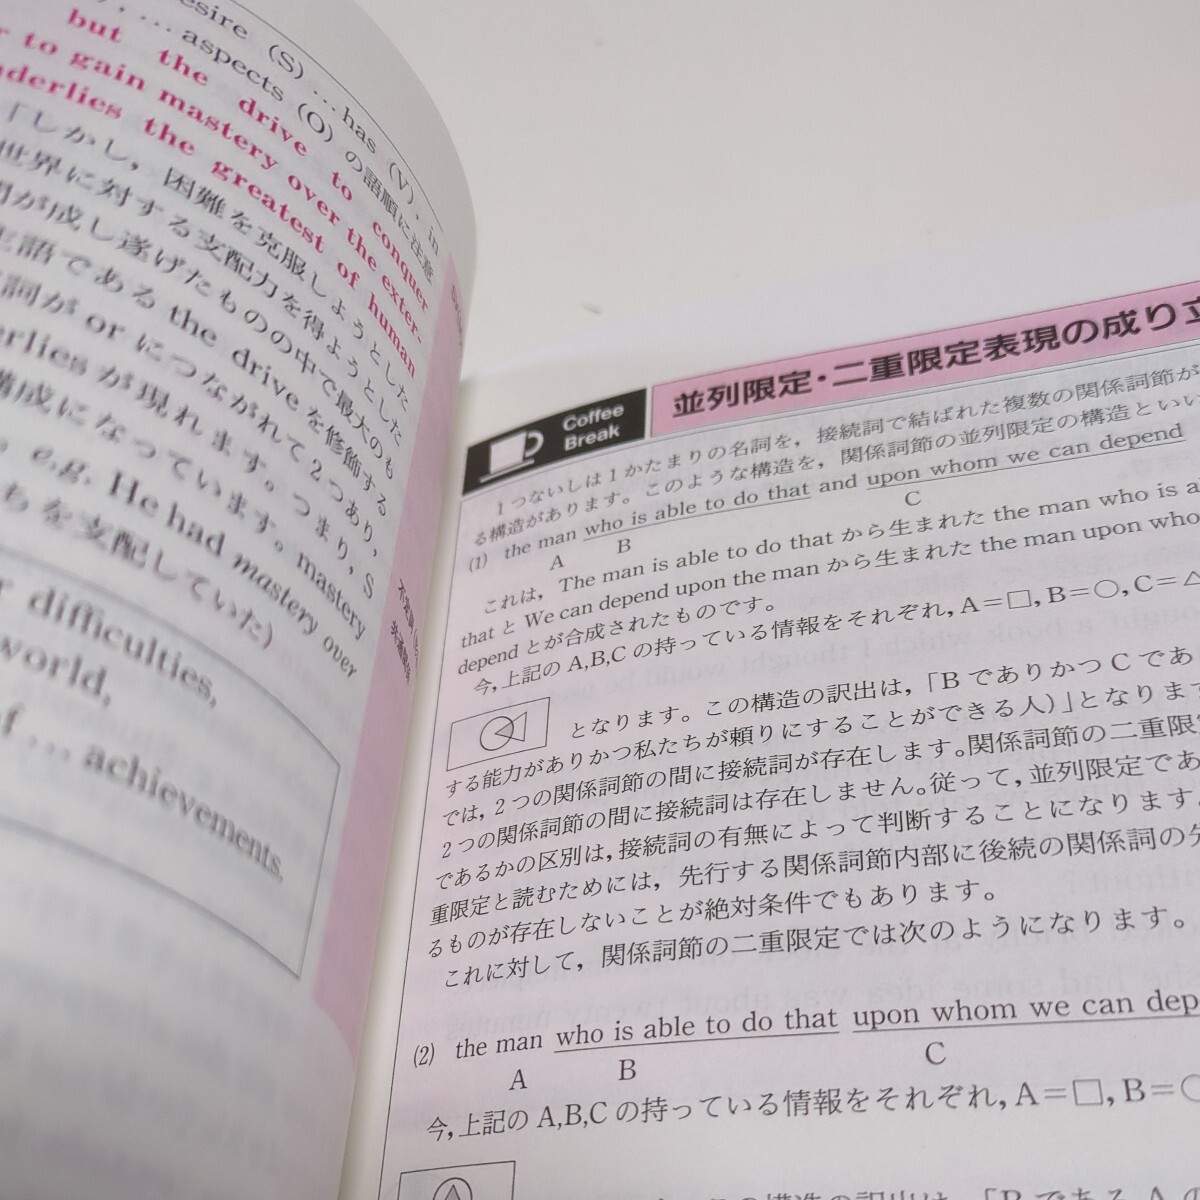 esire (S) … has (V), in
… aspects (O) の語順に注意
but the drive to conquer
to gain mastery over the exter-
derlies the greatest of human
「しかし, 困難を克服しようとした
世界に対する支配力を得ようとした
が成し遂げたものの中で最大のも
語である the drive を修飾する
詞が or につながれて2つあり,
erlies が現れます。つまり, S
構成になっています。mastery
e.g. He had mastery over
ちを支配していた)
difficulties,
world,
f … achievements.
Coffee
Break
並列限定・二重限定表現の成り立
1つないしは1かたまりの名詞を, 接続詞で結ばれた複数の関係詞節が
る構造があります。このような構造を, 関係詞節の並列限定の構造といい
(1) the man who is able to do that and upon whom we can depend
A B C
これは, The man is able to do that から生まれた the man who is a
that と We can depend upon the man から生まれた the man upon who
depend とが合成されたものです。
今, 上記の A,B,C の持っている情報をそれぞれ, A=□, B=○, C=△
となります。この構造の訳出は, 「B でありかつ C であ
する能力がありかつ私たちが頼りにすることができる人)」となりま
では, 2つの関係詞節の間に接続詞が存在します。関係詞節の二重限
2つの関係詞節の間に接続詞は存在しません。従って, 並列限定であ
であるかの区別は, 接続詞の有無によって判断することになります
重限定と読むためには, 先行する関係詞節内部に後続の関係詞の
るものが存在しないことが絶対条件でもあります。
これに対して, 関係詞節の二重限定では次のようになります。
(2) the man who is able to do that upon whom we can dep
A B C
今, 上記の A,B,C の持っている情報をそれぞれ, A=□, B=○